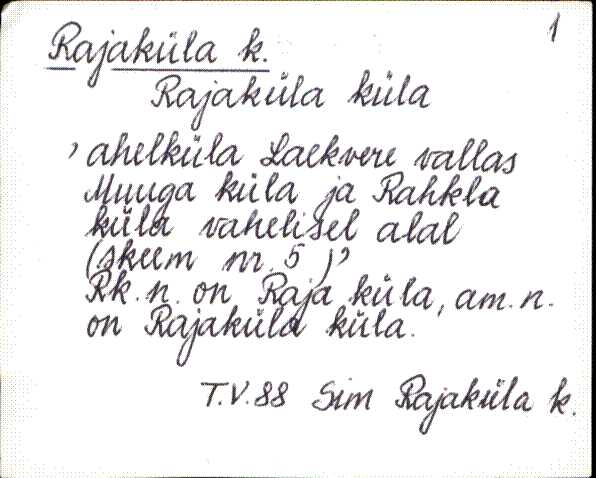 1
Rajaküla k.
Rajaküla küla
, ahelküla Laekvere vallas
Muuga küla ja Rahkla
küla vahelisel alal
(skeem nr. 5)’
Rk. n. on Raja küla, am. n.
on Rajaküla küla.
T.V.88 Sim Rajaküla k.